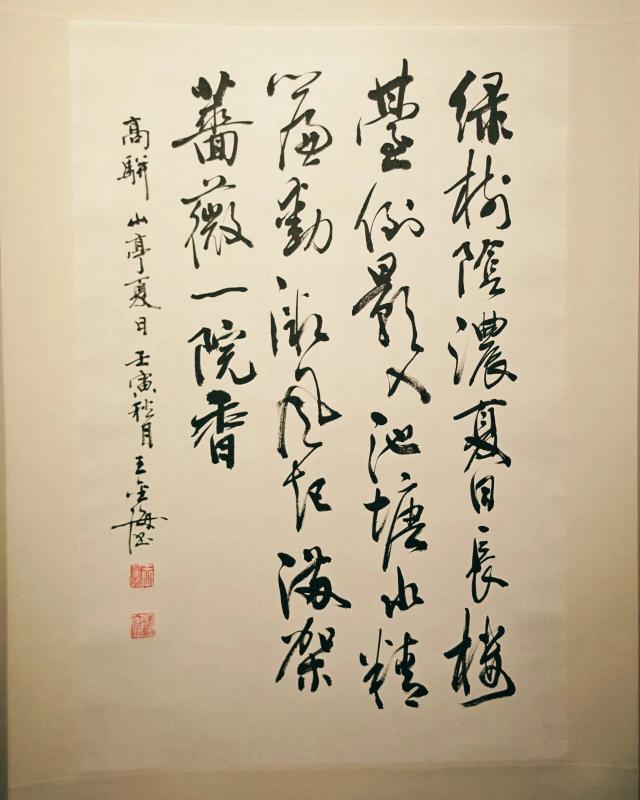 緑樹陰濃夏日長樓
臺倒影入池塘水精
簾動微風起滿架
薔薇一院香
高駢 山亭夏日 壬寅秋月 王金海